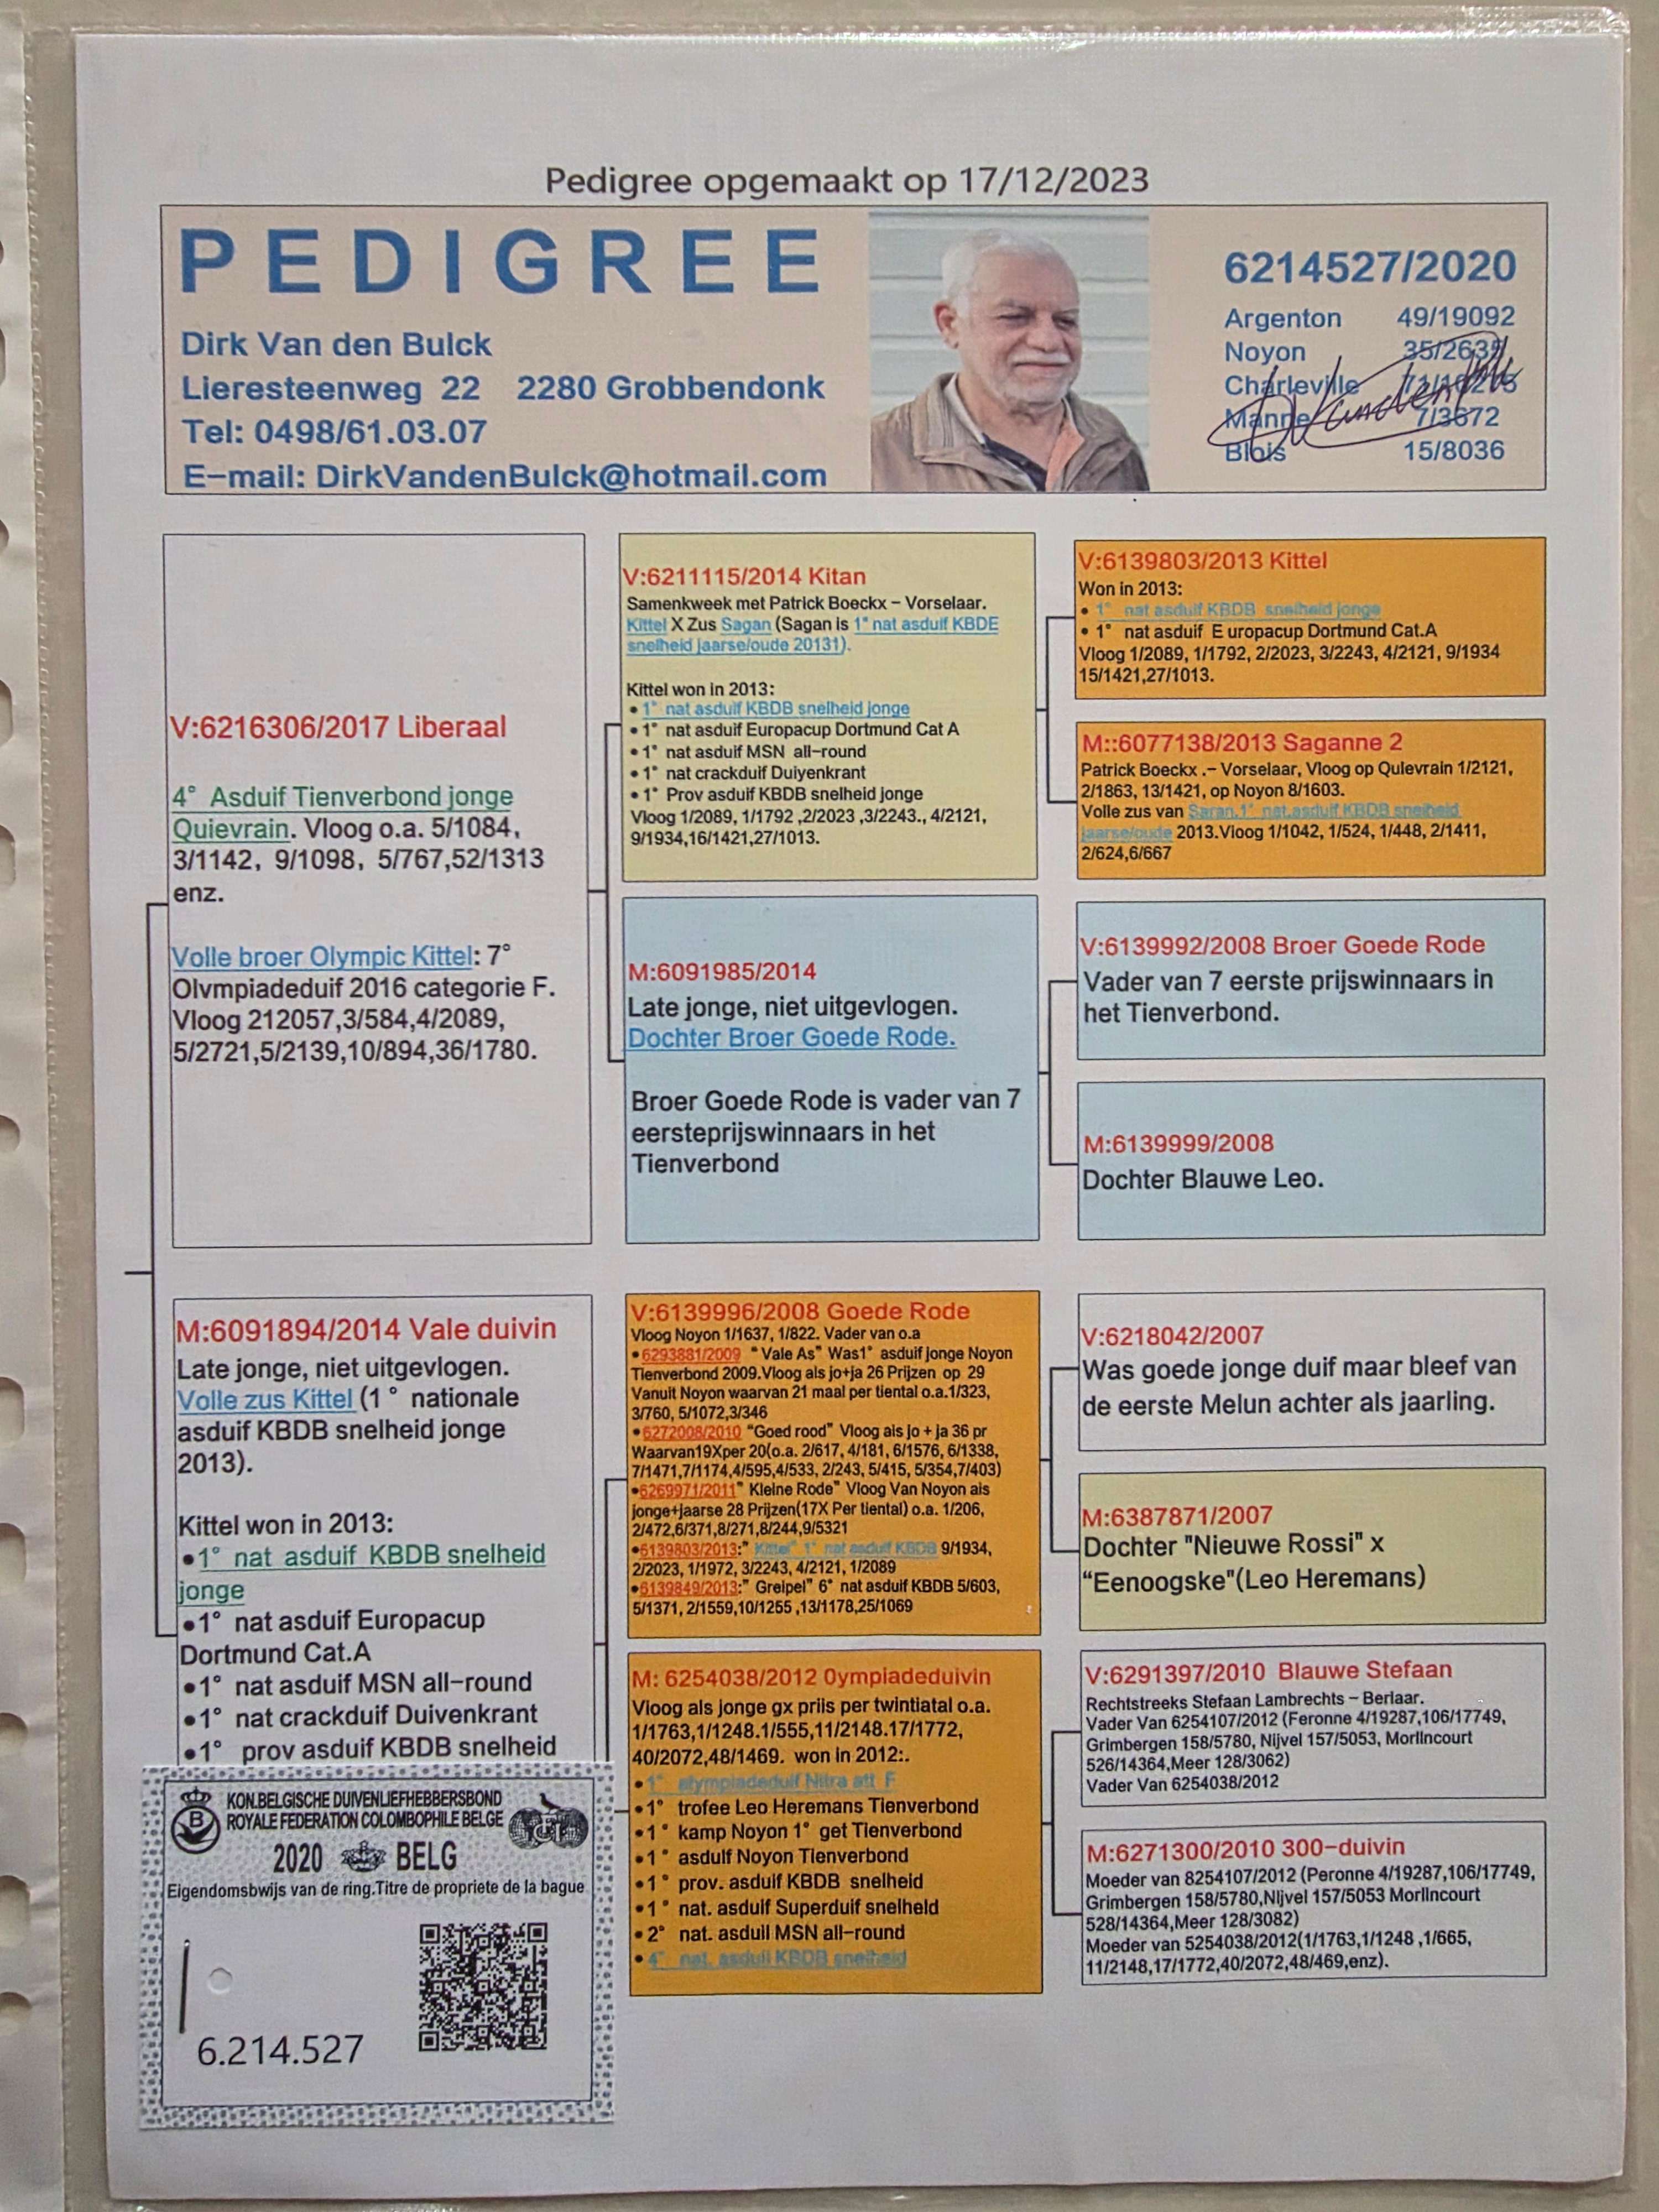 Pedigree opgemaakt op 17/12/2023
PEDIGREE
Dirk Van den Bulck
Lieresteenweg 22 2280 Grobbendonk
Tel: 0498/61.03.07
E-mail: DirkVandenBulck@hotmail.com
6214527/2020
Argenton 49/19092
Noyon 35/2635
Charleville
Manne 7/3672
Blois 15/8036
V:6216306/2017 Liberaal
4° Asduif Tienverbond jonge
Quievrain. Vloog o.a. 5/1084,
3/1142, 9/1098, 5/767,52/1313
enz.
Volle broer Olympic Kittel: 7°
Olvmpiadeduif 2016 categorie F.
Vloog 212057,3/584,4/2089,
5/2721,5/2139,10/894,36/1780.
M:6091894/2014 Vale duivin
Late jonge, niet uitgevlogen.
Volle zus Kittel (1 ° nationale
asduif KBDB snelheid jonge
2013).
Kittel won in 2013:
•1° nat asduif KBDB snelheid
jonge
•1° nat asduif Europacup
Dortmund Cat.A
•1° nat asduif MSN all-round
•1° nat crackduif Duivenkrant
•1° prov asduif KBDB snelheid
V:6211115/2014 Kitan
Samenkweek met Patrick Boeckx - Vorselaar.
Kittel X Zus Sagan (Sagan is 1° nat asduif KBDE
snelheid jaarse/oude 20131).
Kittel won in 2013:
• 1° nat asduif KBDB snelheid jonge
• 1° nat asduif Europacup Dortmund Cat A
• 1° nat asduif MSN all-round
• 1° nat crackduif Duiyenkrant
• 1° Prov asduif KBDB snelheid jonge
Vloog 1/2089, 1/1792 ,2/2023 ,3/2243., 4/2121,
9/1934,16/1421,27/1013.
M:6091985/2014
Late jonge, niet uitgevlogen.
Dochter Broer Goede Rode.
Broer Goede Rode is vader van 7
eersteprijswinnaars in het
Tienverbond
V:6139996/2008 Goede Rode
Vloog Noyon 1/1637, 1/822. Vader van o.a
•6293881/2009 "Vale As" Was1° asduif jonge Noyon
Tienverbond 2009.Vloog als jo+ja 26 Prijzen op 29
Vanuit Noyon waarvan 21 maal per tiental o.a.1/323,
3/760, 5/1072,3/346
•6272008/2010 "Goed rood" Vloog als jo + ja 36 pr
Waarvan19Xper 20(o.a. 2/617, 4/181, 6/1576, 6/1338,
7/1471,7/1174,4/595,4/533, 2/243, 5/415, 5/354,7/403)
•6269971/2011" Kleine Rode" Vloog Van Noyon als
jonge+jaarse 28 Prijzen(17X Per tiental) o.a. 1/206,
2/472,6/371,8/271,8/244,9/5321
•6139803/2013:" Kittel" 1° nat asduif KBDB 9/1934,
2/2023, 1/1972, 3/2243, 4/2121, 1/2089
•6139849/2013:" Greipel" 6° nat asduif KBDB 5/603,
5/1371, 2/1559,10/1255 ,13/1178,25/1069
M: 6254038/2012 0ympiadeduivin
Vloog als jonge gx priis per twintiatal o.a.
1/1763,1/1248.1/555,11/2148.17/1772,
40/2072,48/1469. won in 2012:.
•1° olympiadeduif Nitra att F
•1° trofee Leo Heremans Tienverbond
•1° kamp Noyon 1° get Tienverbond
•1° asdulf Noyon Tlenverbond
•1° prov. asduif KBDB snelheid
•1° nat. asdulf Superduif snelheld
•2° nat. asduil MSN all-round
•4° nat. asduil KBDB snelheid
V:6139803/2013 Kittel
Won in 2013:
• 1° nat asduif KBDB snelheid jonge
• 1° nat asduif E uropacup Dortmund Cat.A
Vloog 1/2089, 1/1792, 2/2023, 3/2243, 4/2121, 9/1934
15/1421,27/1013.
M::6077138/2013 Saganne 2
Patrick Boeckx .- Vorselaar, Vloog op Qulevrain 1/2121,
2/1863, 13/1421, op Noyon 8/1603.
Volle zus van Saran.1° nat.asduif KBDB snelheid
jaarse/oude 2013.Vloog 1/1042, 1/524, 1/448, 2/1411,
2/624,6/667
V:6139992/2008 Broer Goede Rode
Vader van 7 eerste prijswinnaars in
het Tienverbond.
M:6139999/2008
Dochter Blauwe Leo.
V:6218042/2007
Was goede jonge duif maar bleef van
de eerste Melun achter als jaarling.
M:6387871/2007
Dochter "Nieuwe Rossi" x
“Eenoogske"(Leo Heremans)
V:6291397/2010 Blauwe Stefaan
Rechtstreeks Stefaan Lambrechts - Berlaar.
Vader Van 6254107/2012 (Feronne 4/19287,106/17749,
Grimbergen 158/5780, Nijvel 157/5053, Morlincourt
526/14364,Meer 128/3062)
Vader Van 6254038/2012
M:6271300/2010 300-duivin
Moeder van 8254107/2012 (Peronne 4/19287,106/17749,
Grimbergen 158/5780,Nljvel 157/5053 Morlincourt
528/14364,Meer 128/3082)
Moeder van 5254038/2012(1/1763,1/1248 ,1/665,
11/2148,17/1772,40/2072,48/469,enz).
KON.BELGISCHE DUIVENLIEFHEBBERSBOND
ROYALE FEDERATION COLOMBOPHILE BELGE
B
2020 BELG
Eigendomsbwijs van de ring.Titre de propriete de la bague
6.214.527